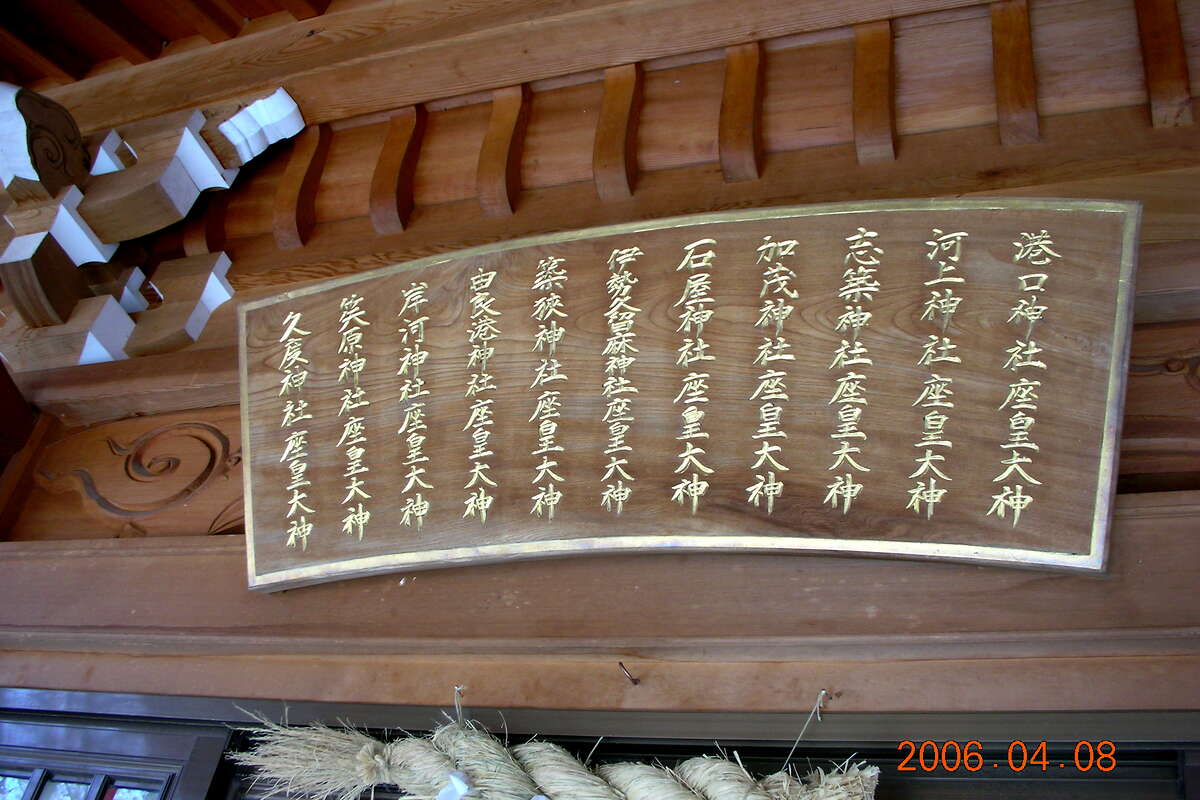 港口神社座皇大神
河上神社座皇大神
志築神社座皇大神
加茂神社座皇大神
石屋神社座皇大神
伊勢久留麻神社座皇大神
築狹神社座皇大神
由良湊神社座皇大神
岸河神社座皇大神
笶原神社座皇大神
久度神社座皇大神
2006.04.08